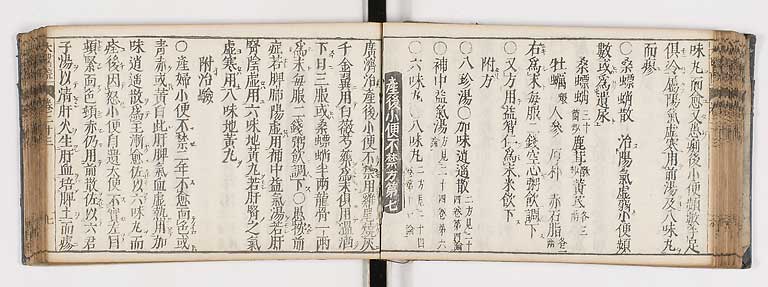 味丸而愈又患痢後小便頻數手足
俱冷屬陽氣虛寒用前湯及八味丸
而瘳
○桑螵蛸散　治陽氣虛弱小便頻
數或為遺尿
桑螵蛸三十箇 鹿茸 黃芪各三
牡蠣 人參 赤石脂各二
右為末每服二錢空心粥飲調下
○又方用益智仁為末米飲下
附方
○八珍湯○加味逍遙散二方見二十四卷第四
○補中益氣湯方見二十四卷第六
○六味丸○八味丸二方見二十四
產後小便不禁方第七
廣濟治產後小便不禁用雞屎燒灰
千金翼用白薇芍藥為末俱用溫酒
下日三服或桑螵蛸半兩龍骨一兩
為末每服二錢粥飲調下○愚按前
症若脾肺陽虛用補中益氣湯若肝
腎陰虛用六味地黃丸若肝腎之氣
虛寒用八味地黃丸
附治驗
○產婦小便不禁二年不愈面色或
青赤或黃白此肝脾氣血虛熱用加
味逍遙散為主漸愈佐以六味丸而
產後因怒小便自遺大便不實左目
頓緊面色頓赤仍用前散佐以六君
子湯以清肝火生肝血培脾土而瘳